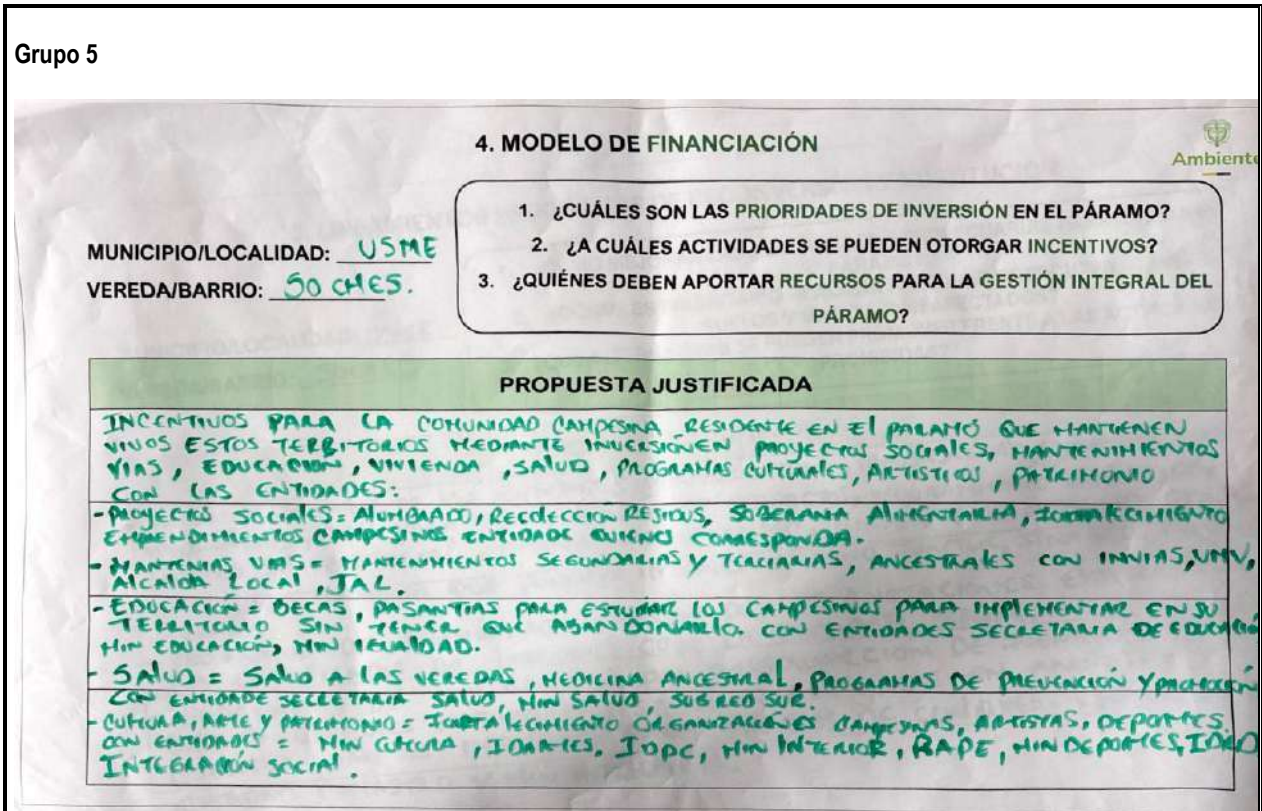 Grupo 5
4. MODELO DE FINANCIACIÓN
Ambiente
MUNICIPIO/LOCALIDAD: USME
VEREDA/BARRIO: SOCHES.
1. ¿CUÁLES SON LAS PRIORIDADES DE INVERSIÓN EN EL PÁRAMO?
2. ¿A CUÁLES ACTIVIDADES SE PUEDEN OTORGAR INCENTIVOS?
3. ¿QUIÉNES DEBEN APORTAR RECURSOS PARA LA GESTIÓN INTEGRAL DEL
PÁRAMO?
PROPUESTA JUSTIFICADA
INCENTIVOS PARA LA COMUNIDAD CAMPESINA RESIDENTE EN El PARAMO QUE MANTIENEN
VIVOS ESTOS TERRITORIOS MEDIANTE INVERSION EN PROYECTOS SOCIALES, MANTENIMIENTOS
VIAS, EDUCACION, VIVIENDA, SALUD, PROGRAMAS CULTURALES, ARTISTICOS, PATRIMONIO
CON LAS ENTIDADES:
- PROYECTOS SOCIALES = ALUMBRADO, RECOLECCION RESIDUS, SOBERANIA ALIMENTARIA,
EMPRENDIMIENTOS CAMPESINOS ENTIDADE QUIENO CORRESPONDA.
- VIAS = MANTENIMIENTOS SEGUNDARIAS Y TERCIARIAS, ANCESTRALES CON INVIAS, UMV,
ALCALDIA LOCAL, JAL.
- EDUCACION = BECAS, PASANTIAS PARA ESTUDIAR LOS CAMPESINOS PARA IMPLEMENTAR EN SU
TERRITORIO SIN TENER QUE ABANDONARLO. CON ENTIDADES SECRETARIA DE EDUCACIÓN
MIN EDUCACIÓN, MIN IGUALDAD.
- SALUD = SALUD A LAS VEREDAS, MEDICINA ANCESTRAL, PROGRAMAS DE PREVENCIÓN Y PROMOCIÓN
CON ENTIDADE SECRETARIA SALUD, MIN SALUD, SUBRED SUR.
- CULTURA, ARTE Y PATRIMONIO = ORGANIZACIONES CAMPESINAS, ARTISTAS, DEPORTES.
CON ENTIDADES = MIN CULTURA, IDARTES, IDPC, MIN INTERIOR, RAPE, MIN DEPORTES, IDRD
INTEGRACIÓN SOCIAL.